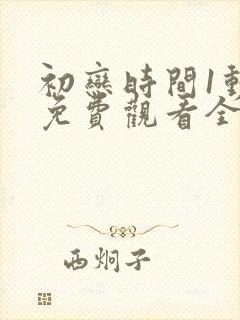 初戀時間1動
免費觀看全
西炯子